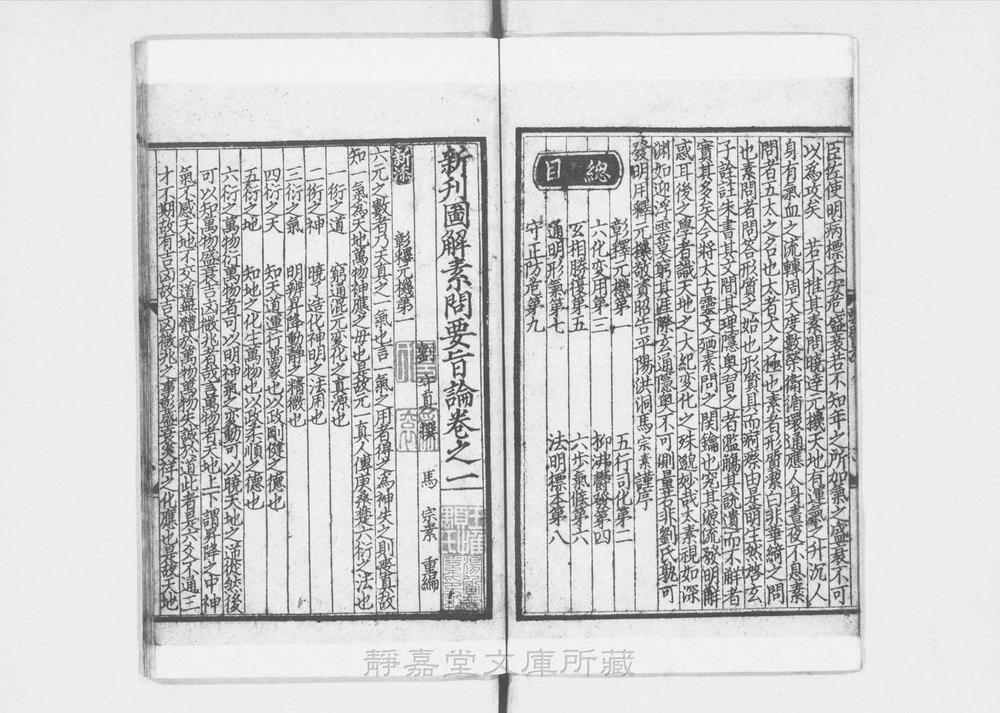 臣佐使明病標本安危盛衰若不知年之所加氣之盛衰不可
以為攻矣　若不推其素問曉達元機天地有運氣之升沉人
身有氣血之流轉周天度數榮衛循環通應人身晝夜不息素
問者五太之名也太者大之極也素者形質潔白非華綺之問
也素問者問荅形質之始也形質具而痾瘵由是萌生然啓玄
子詮註朱書其文間其理隱奧習之者濫觴其說遺而不解者
實其多矣今將太古靈文廼素問之関鑰也究其源流發明解
惑耳後之學者識天地之大紀變化之殊䚟妙哉太素視如深
淵如迎浮雲莫窮其涯際玄通隱奥不可測量若非劉氏孰可
發明用釋玄元機敬資昭告平陽洪洞馬宗素謹序
總目
彰釋元機第一　五行司化第二
六化變用第三　抑沸鬱發第四
玄相勝復第五　六步氣候第六
通明形氣第七　法明標本第八
守正防危第九
新刊圖解素問要旨論卷之一
劉守真撰　馬宗素重編
新添　彰釋元機第一
六元之數者乃天真之一氣也言一氣之用者得之為神失之則喪真故
知一氣為天地萬物神應之毋也是故元一真人傳庚桑樊六衍之法也
一衍之道　窮通混元変化之真源也
二衍之神　曉了造化神明之法用也
三衍之氣　明辨昇降動静之精微也
四衍之天　知天道運行萬象也以政剛健之德也
五衍之地　知地之化生萬物也以政柔順之德也
六衍之萬物衍萬物者可以明神氣之变動可以曉天地之溢漩然後
可以知萬物盛衰吉凶徵兆者哉言萬物者天地上下謂昇降之中神
氣交感天地不交道無體於萬物萬物失誠於道此者是六爻不通三
才不期故有吉凶故吉凶徵兆之事爲盛衰災祥之化應也是故天地
靜嘉堂文庫所藏